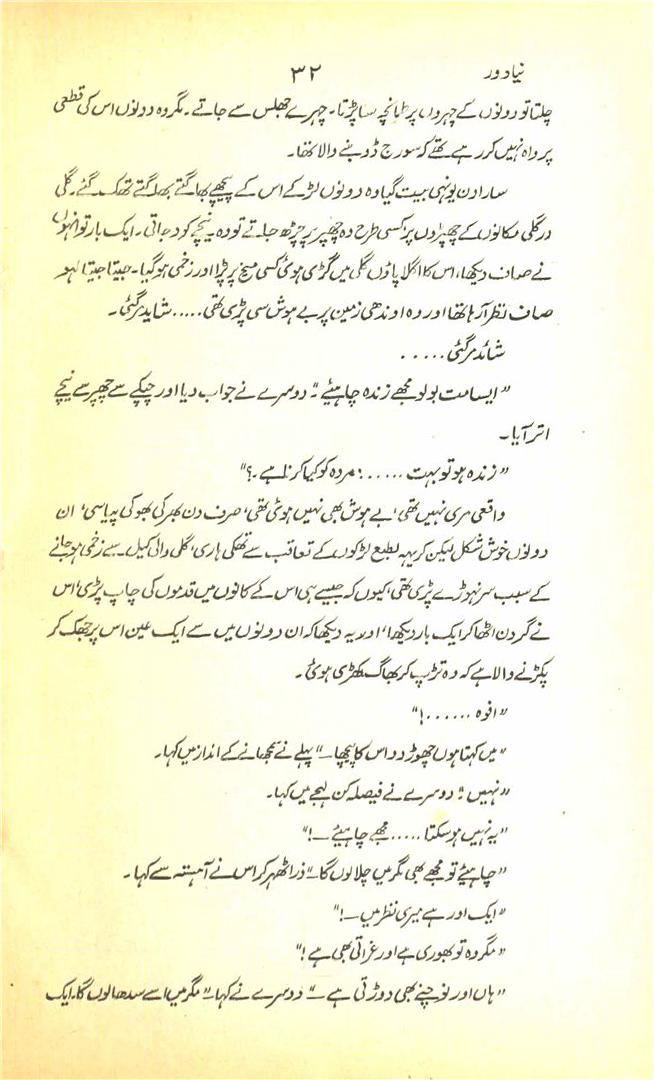 نیا دور ۳۲
چلتا تو دونوں کے چہروں پر طمانچہ سا پڑتا۔ چہرے جھلس سے جاتے۔ مگر وہ دونوں اس کی قطعی
پرواہ نہیں کر رہے تھے کہ سورج ڈوبنے والا تھا۔
سارا دن یونہی بیت گیا وہ دونوں لڑکے اس کے پیچھے بھاگتے بھاگتے تھک گئے۔ گلی
در گلی مکانوں کے چھپروں پر کسی طرح وہ چھپر پر چڑھ جاتے تو وہ نیچے کود جاتی۔ ایک بار تو انہوں
نے صاف دیکھا، اس کا اگلا پاؤں گلی میں گڑی ہوئی کسی میخ پر پڑا اور زخمی ہو گیا۔ جیتا جیتا لہو
صاف نظر آ رہا تھا اور وہ اوندھی زمین پر بے ہوش سی پڑی تھی ..... شاید مر گئی۔
شائد مر گئی .....
"ایسا مت بولو مجھے زندہ چاہیئے۔" دوسرے نے جواب دیا اور چپکے سے چھپر سے نیچے
اتر آیا۔
"زندہ ہو تو بہت ......؛ مردہ کو کیا کرنا ہے۔؟"
واقعی مری نہیں تھی، بے ہوش بھی نہیں ہوئی تھی، صرف دن بھر کی بھوکی پیاسی، ان
دونوں خوش شکل لیکن کریہہ طبع لڑکوں کے تعاقب سے تھکی ہاری، گلی والی کیل سے زخمی ہو جانے
کے سبب سر نہوڑے پڑی تھی، کیوں کہ جیسے ہی اس کے کانوں میں قدموں کی چاپ پڑی، اس
نے گردن اٹھا کر ایک بار دیکھا، اور یہ دیکھا کہ ان دونوں میں سے ایک عین اس پر جھک کر
پکڑنے والا ہے کہ وہ تڑپ کر بھاگ کھڑی ہوئی۔
"افوہ ......!"
"میں کہتا ہوں چھوڑ دو اس کا پیچھا۔" پہلے نے سمجھانے کے انداز میں کہا۔
"نہیں۔" دوسرے نے فیصلہ کن لہجے میں کہا۔
"یہ نہیں ہو سکتا ..... مجھے چاہیئے ـ!"
"چاہیئے تو مجھے بھی مگر میں چلا لوں گا۔" ذرا ٹھہر کر اس نے آہستہ سے کہا۔
"ایک اور ہے میری نظر میں ـ!"
"مگر وہ تو بھوری ہے اور غراتی بھی ہے!"
"ہاں اور نوچنے بھی دوڑتی ہے ـ" دوسرے نے کہا۔ "مگر میں اسے سدھا لوں گا۔ ایک